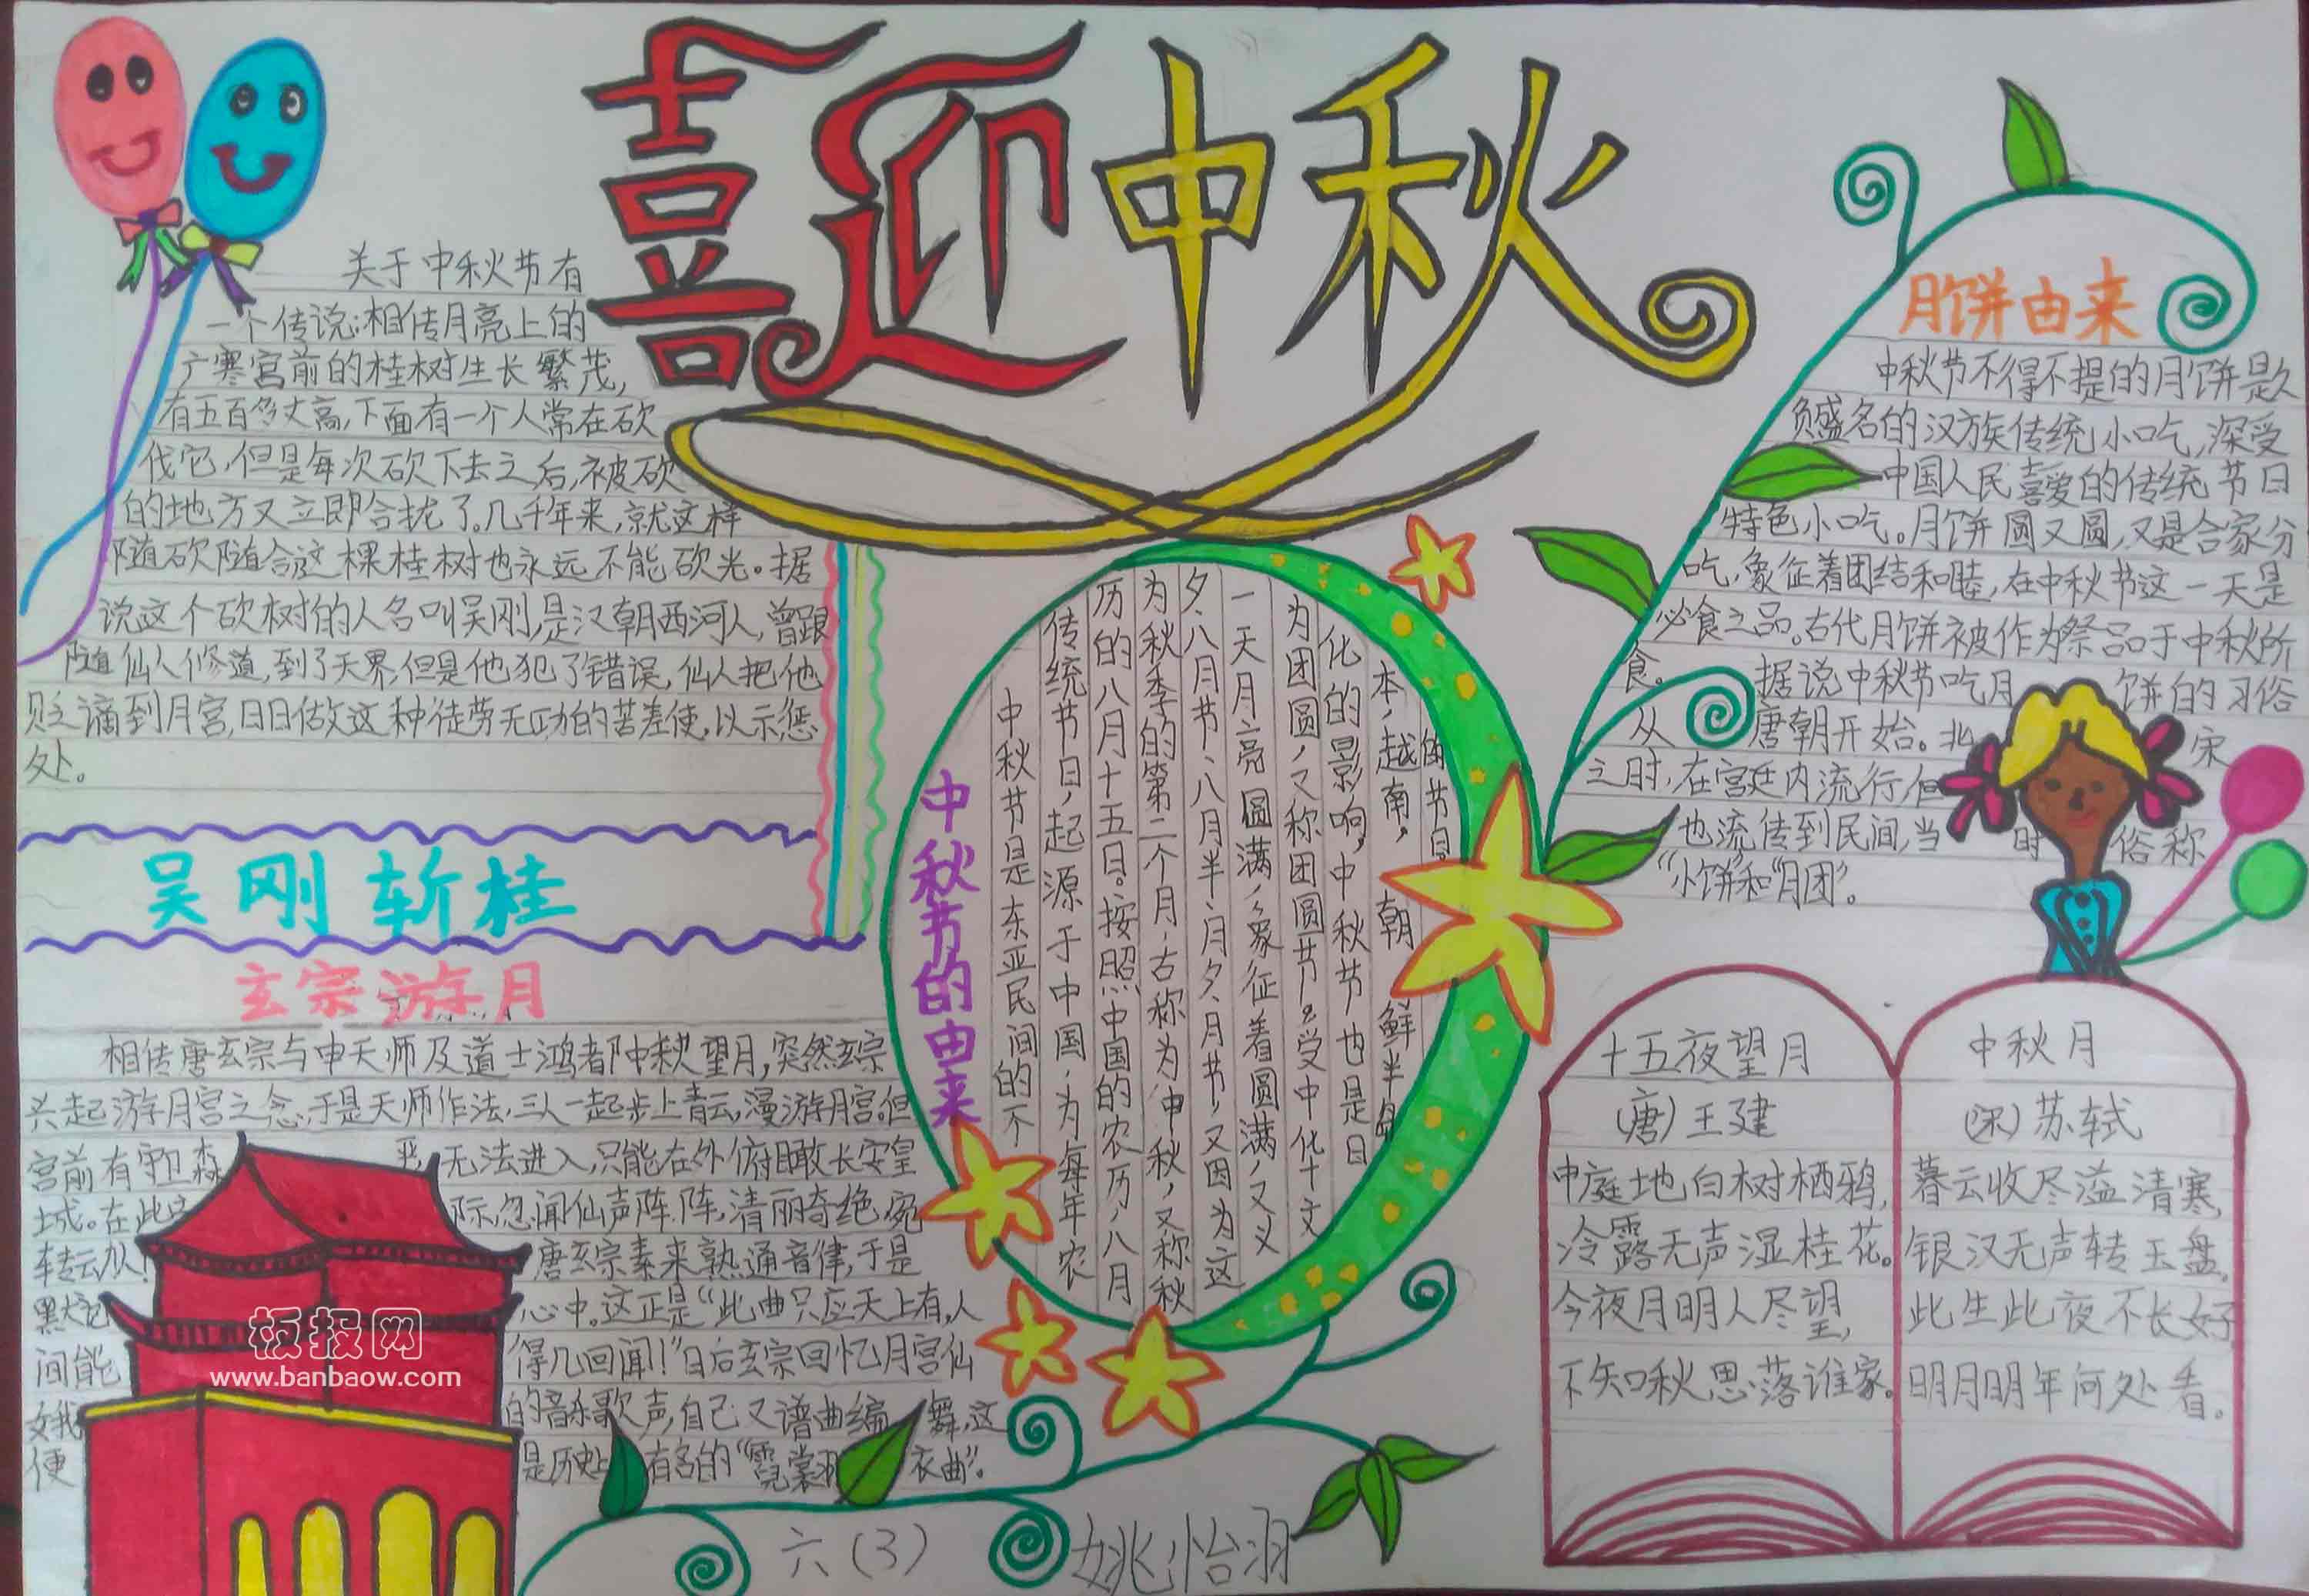 喜迎中秋
关于中秋节有
一个传说:相传月亮上的
广寒宫前的桂树生长繁茂,
有五百多丈高,下面有一个人常在砍
伐它,但是每次砍下去之后,被砍
的地方又立即合拢了。几千年来,就这样
随砍随合,这棵桂树也永远不能砍光。据
说这个砍树的人名叫吴刚,是汉朝西河人,曾跟
随仙人修道,到了天界,但是他犯了错误,仙人把他
贬谪到月宫,日日做这种徒劳无功的苦差使,以示惩
处。
吴刚斩桂
玄宗游月
相传唐玄宗与申天师及道士鸿都中秋望月,突然玄宗
兴起游月宫之念,于是天师作法,三人一起步上青云,漫游月宫。但
宫前有守卫森严,无法进入,只能在外俯瞰长安皇
城。在此之际,忽闻仙声阵阵,清丽奇绝,宛
转动人!唐玄宗素来熟通音律,于是
默记心中。这正是“此曲只应天上有,人
间能得几回闻!”日后玄宗回忆月宫仙
娥的音乐歌声,自己又谱曲编舞,这
便是历史上有名的“霓裳羽衣曲”。
中秋节的由来
中秋节是东亚民间的不
传统节日,起源于中国,为每年农
历的八月十五日。按照中国的农历,八月
为秋季的第二个月,古称为仲秋,又称秋
夕、八月节、八月半、月夕、月节,又因为这
一天月亮圆满,象征着圆满,又义
为团圆,又称团圆节。受中华文
化的影响,中秋节也是日
本,越南,朝鲜半岛
的节日。
月饼由来
中秋节不得不提的月饼是久
负盛名的汉族传统小吃,深受
中国人民喜爱的传统节日
特色小吃。月饼圆又圆,又是合家分
吃,象征着团结和睦,在中秋节这一天是
必食之品。古代月饼被作为祭品于中秋所
食。据说中秋节吃月饼的习俗
从唐朝开始。北宋
之时,在宫廷内流行,但
也流传到民间,当时俗称
“小饼”和“月团”。
十五夜望月
(唐)王建
中庭地白树栖鸦,
冷露无声湿桂花。
今夜月明人尽望,
不知秋思落谁家。
中秋月
(宋)苏轼
暮云收尽溢清寒,
银汉无声转玉盘。
此生此夜不长好,
明月明年何处看。
六(3) 姚怡羽
板报网
www.banbaow.com